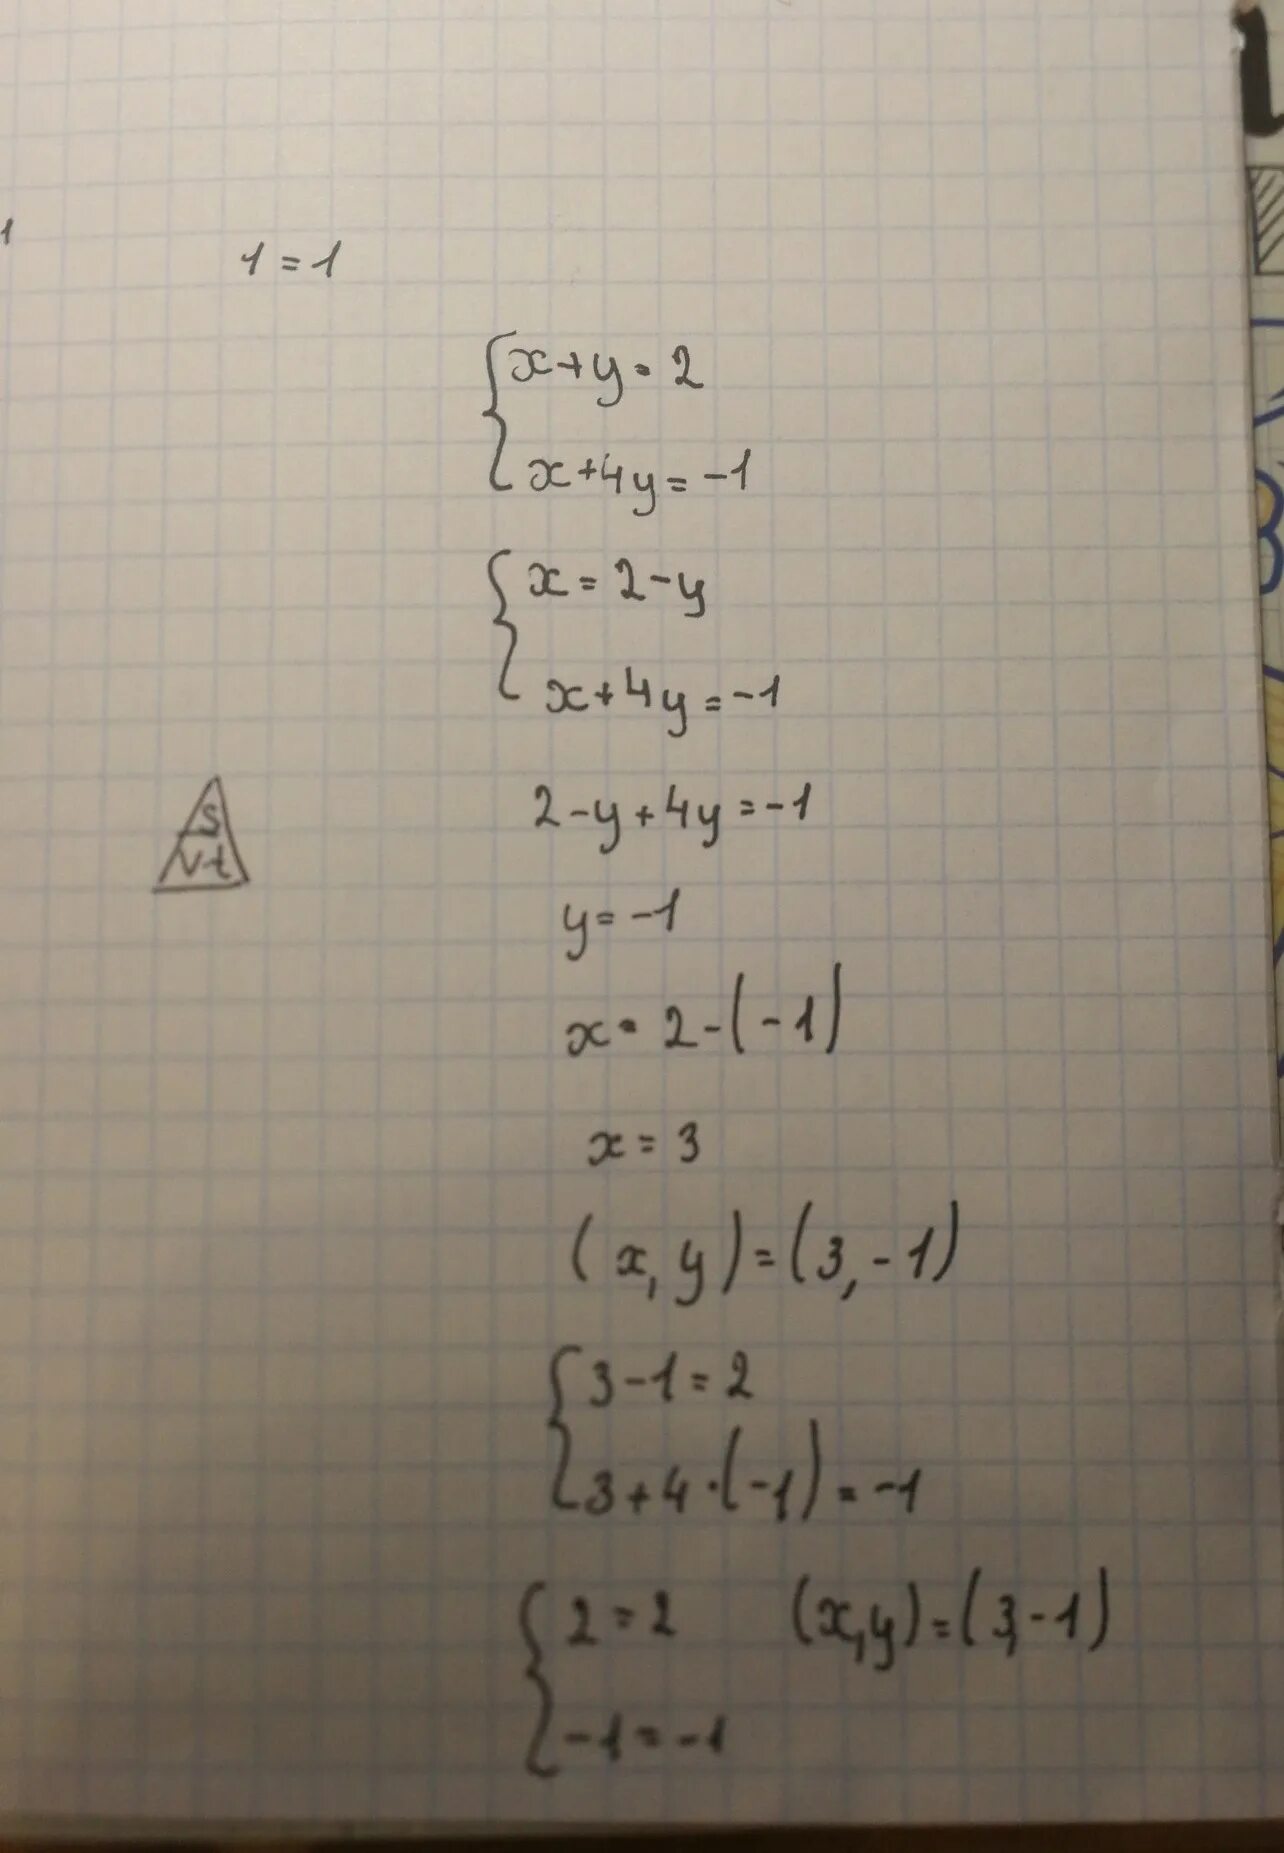 1
1 = 1
{ x + y = 2
x + 4y = -1
{ x = 2 - y
x + 4y = -1
2 - y + 4y = -1
S
v t
y = -1
x = 2 - (-1)
x = 3
(x, y) = (3, -1)
{ 3 - 1 = 2
3 + 4 · (-1) = -1
{ 2 = 2 (x, y) = (3, -1)
-1 = -1